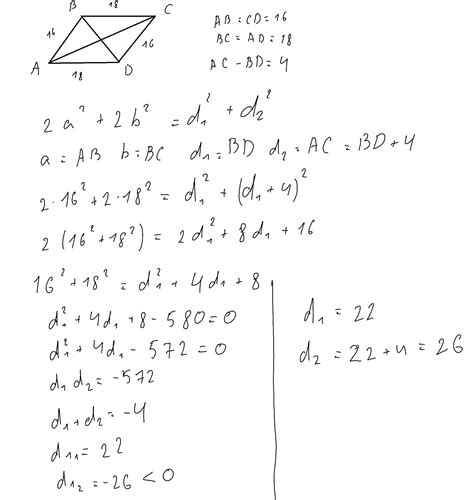 B 18 C
16 16
A 18 D
AB = CD = 16
BC = AD = 18
AC - BD = 4
2a² + 2b² = d₁² + d₂²
a = AB b = BC d₁ = BD d₂ = AC = BD + 4
2·16² + 2·18² = d₁² + (d₁ + 4)²
2(16² + 18²) = 2d₁² + 8d₁ + 16
16² + 18² = d₁² + 4d₁ + 8
d₁² + 4d₁ + 8 - 580 = 0
d₁² + 4d₁ - 572 = 0
d₁d₂ = -572
d₁ + d₂ = -4
d₁₁ = 22
d₁₂ = -26 < 0
d₁ = 22
d₂ = 22 + 4 = 26